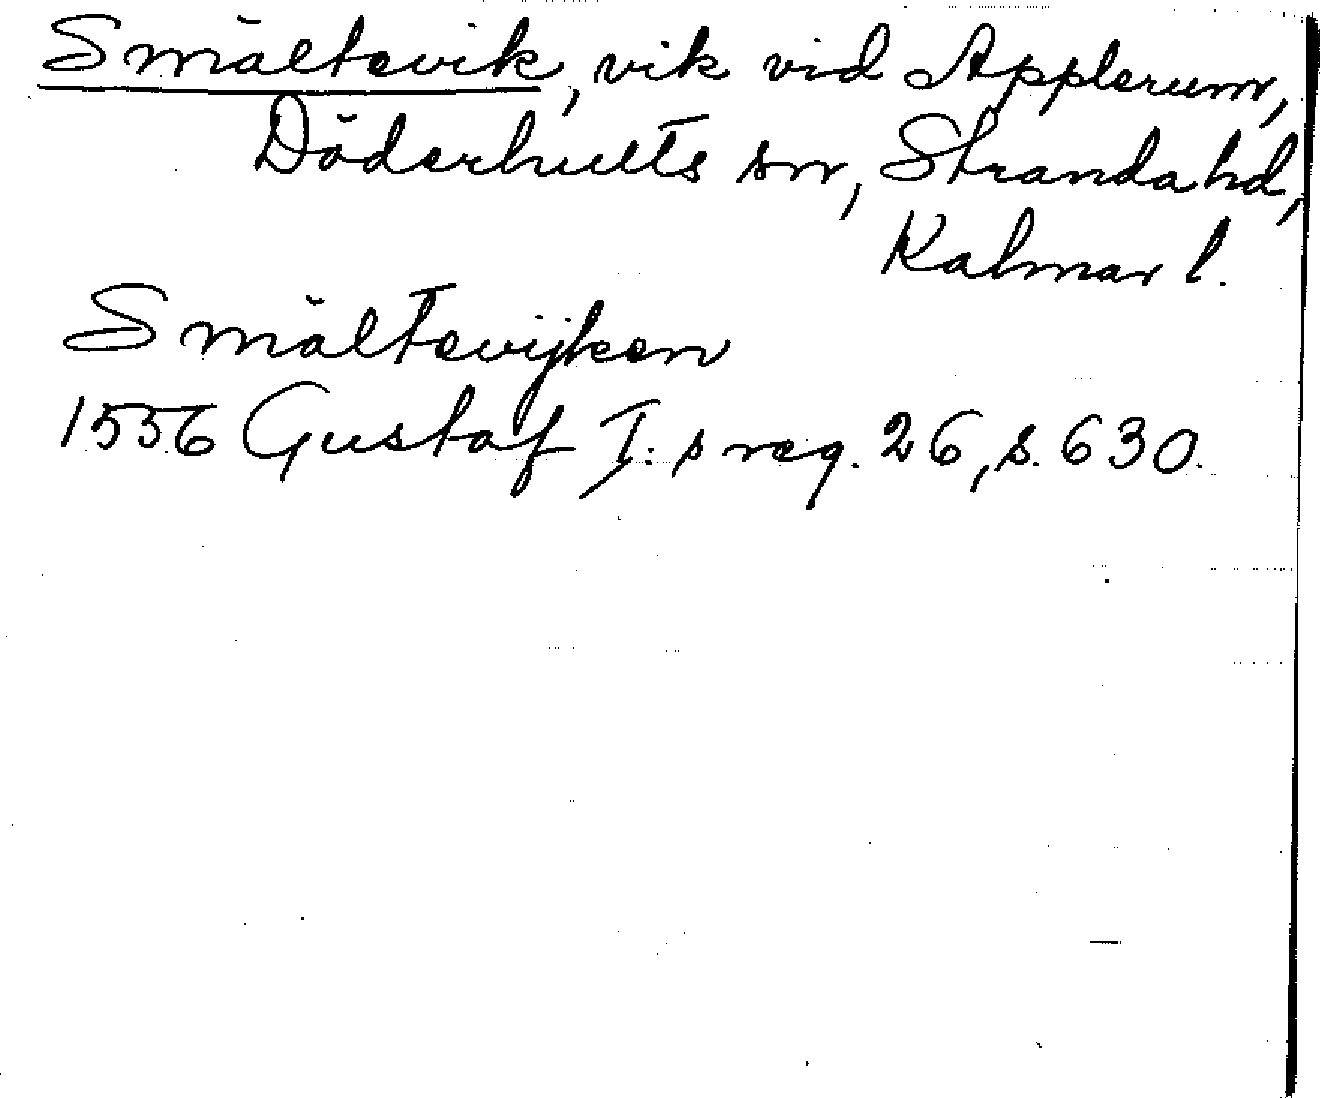 Smältevik, vik vid Applerum,
Döderhults sn, Stranda hd,
Kalmar l.
Smältevijken
1556 Gustaf I:s reg. 26, s. 630.